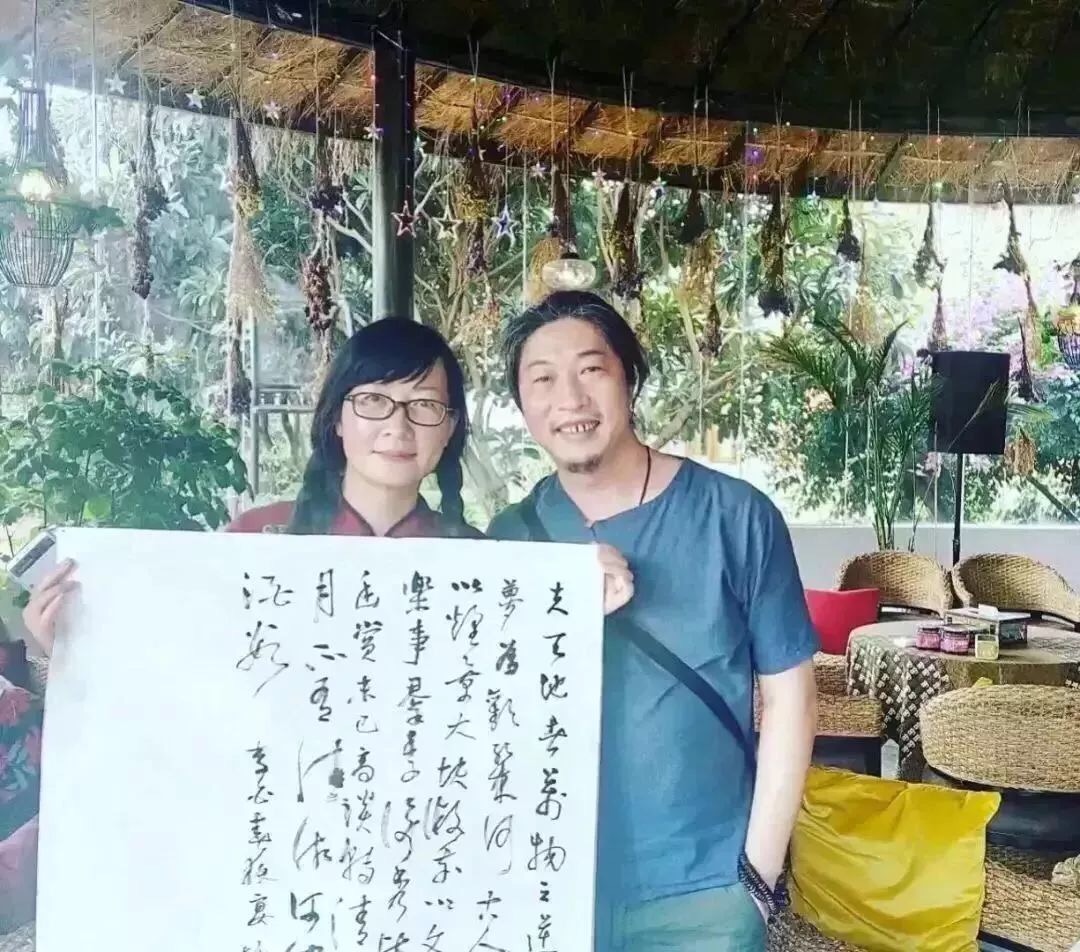 夫天地者萬物之逆
夢爲歡幾何古人
以煙景大塊假我以文
樂事羣季俊秀皆
幽賞未已高談轉清
月不有佳詠何伸
酒數
李白春夜宴